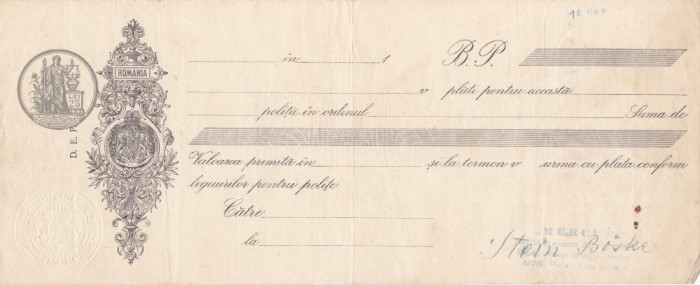 12 SEP
în 1 B. P.
ROMANIA
v plăti pentru această
poliță în ordinul Suma de
D. E. F.
Valoarea primită în și la termen v urma cu plata conform
legiuirilor pentru polițe
Către
la
MERCA
Stein Böske